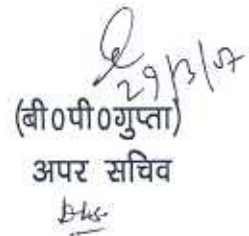 29/3/07
(बी0पी0गुप्ता)
अपर सचिव